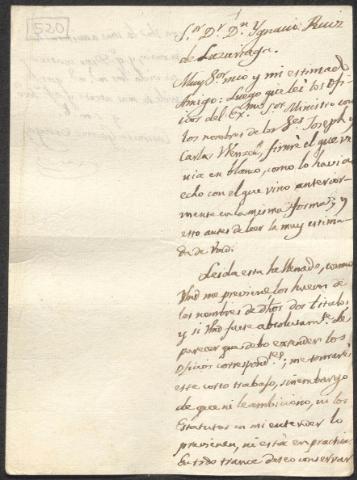 520
S.or D.r D.n Ygnacio Ruiz
de Luzuriaga.
Muy S.or mio y mi estimado
Amigo: Luego que leí los ofi-
cios del Ex.mo S.or Ministro con
los nombres de los S.res Joseph y
Carlos Wenzel, firmé el que ve-
nia en blanco, como lo havia
echo con el que vino anterior-
mente en la misma forma; y
esto antes de leer la muy estima-
da de Vmd.
Leida esta he llenado, como
Vmd me previene los huecos de
los nombres de dhos dos titulos,
y si Vmd fuese absolutam.te de
parecer que debo extender los
oficios correspond.tes, me tomaré
este corto trabajo, sin embargo
de que ni le ambiciono, ni los
Estatutos en mi entender lo
previenen, ni está en practica.
En todo trance deseo conservar